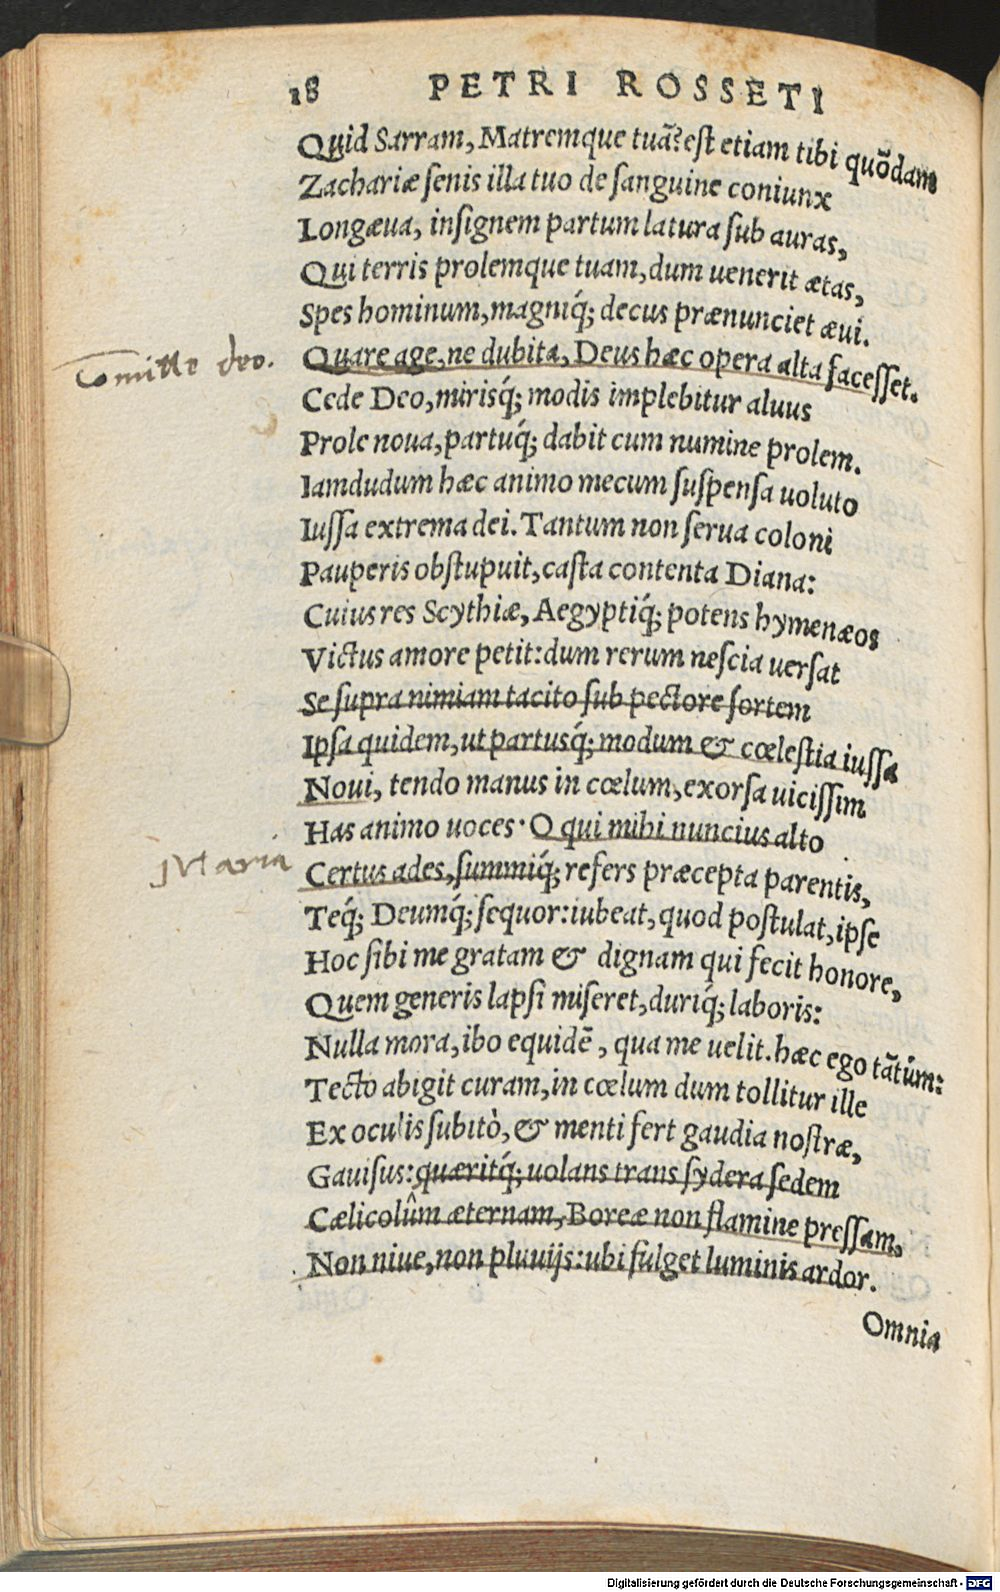 18 PETRI ROSSETI
Quid Sarram, Matremque tuā? est etiam tibi quōdam
Zachariæ senis illa tuo de sanguine coniunx
Longæua, insignem partum latura sub auras,
Qui terris prolemque tuam, dum uenerit ætas,
Spes hominum, magniq́; decus prænunciet æui.
Quare age, ne dubita, Deus hæc opera alta facesset.
Comitte deo.
Cede Deo, mirisq́; modis implebitur aluus
Prole noua, partuq́; dabit cum numine prolem.
Iamdudum hæc animo mecum suspensa uoluto
Iussa extrema dei. Tantum non serua coloni
Pauperis obstupuit, casta contenta Diana:
Cuius res Scythiæ, Aegyptiq́; potens hymenæos
Victus amore petit: dum rerum nescia uersat
Se supra nimiam tacito sub pectore sortem
Ipsa quidem, ut partusq́; modum & cœlestia iussa
Noui, tendo manus in cœlum, exorsa uicissim
Has animo uoces. O qui mihi nuncius alto
Maria
Certus ades, summiq́; refers præcepta parentis,
Teq́; Deumq́; sequor: iubeat, quod postulat, ipse
Hoc sibi me gratam & dignam qui fecit honore,
Quem generis lapsi miseret, duriq́; laboris:
Nulla mora, ibo equidē, qua me uelit. hæc ego tātùm:
Tecto abigit curam, in cœlum dum tollitur ille
Ex oculis subitò, & menti fert gaudia nostræ,
Gauisus: quæritq́; uolans trans sydera sedem
Cælicolûm æternam, Boreæ non flamine pressam,
Non niue, non pluuijs: ubi fulget luminis ardor.
Omnia
Digitalisierung gefördert durch die Deutsche Forschungsgemeinschaft - DFG